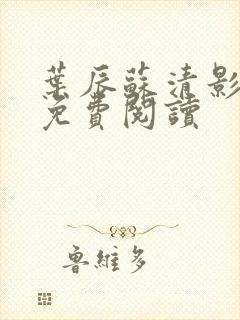 葉辰蘇清影
免費閱讀
魯維多